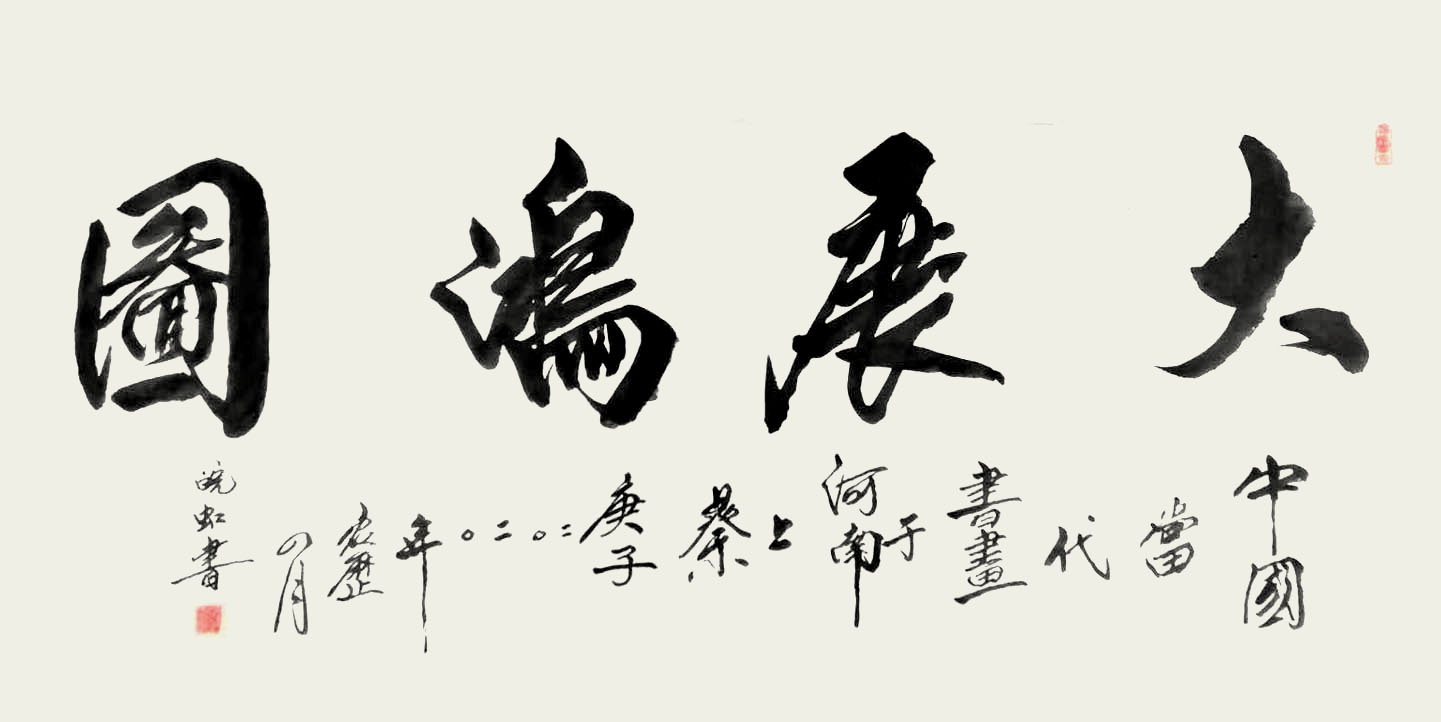 大展鴻圖
中國當代書畫于河南上蔡庚子二〇二〇年農歷四月
皖虹書